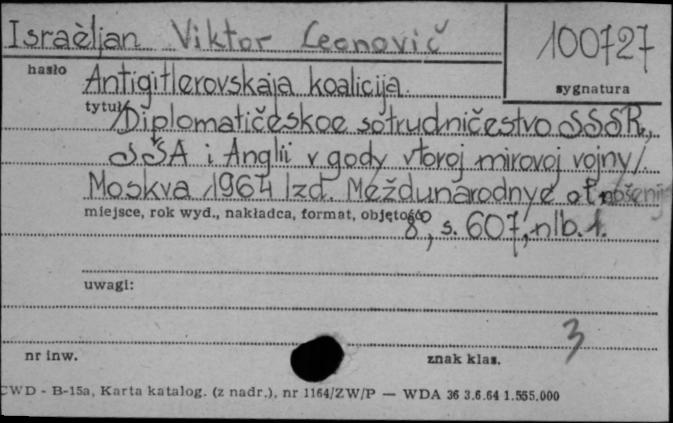 Israèljan Viktor Leonovič
100727
hasło
Antigitlerovskaja koalicija.
sygnatura
tytuł
/Diplomatičeskoe sotrudničestvo SSSR,
SŠA i Anglii v gody vtoroj mirovoj vojny/.
Moskva 1964 Izd. Meždunarodnye otnošenija
miejsce, rok wyd., nakładca, format, objętość
8°, s. 607, nlb. 1.
uwagi:
3
nr inw.
znak klas.
CWD - B-15a, Karta katalog. (z nadr.), nr 1164/ZW/P — WDA 36 3.6.64 1.555.000